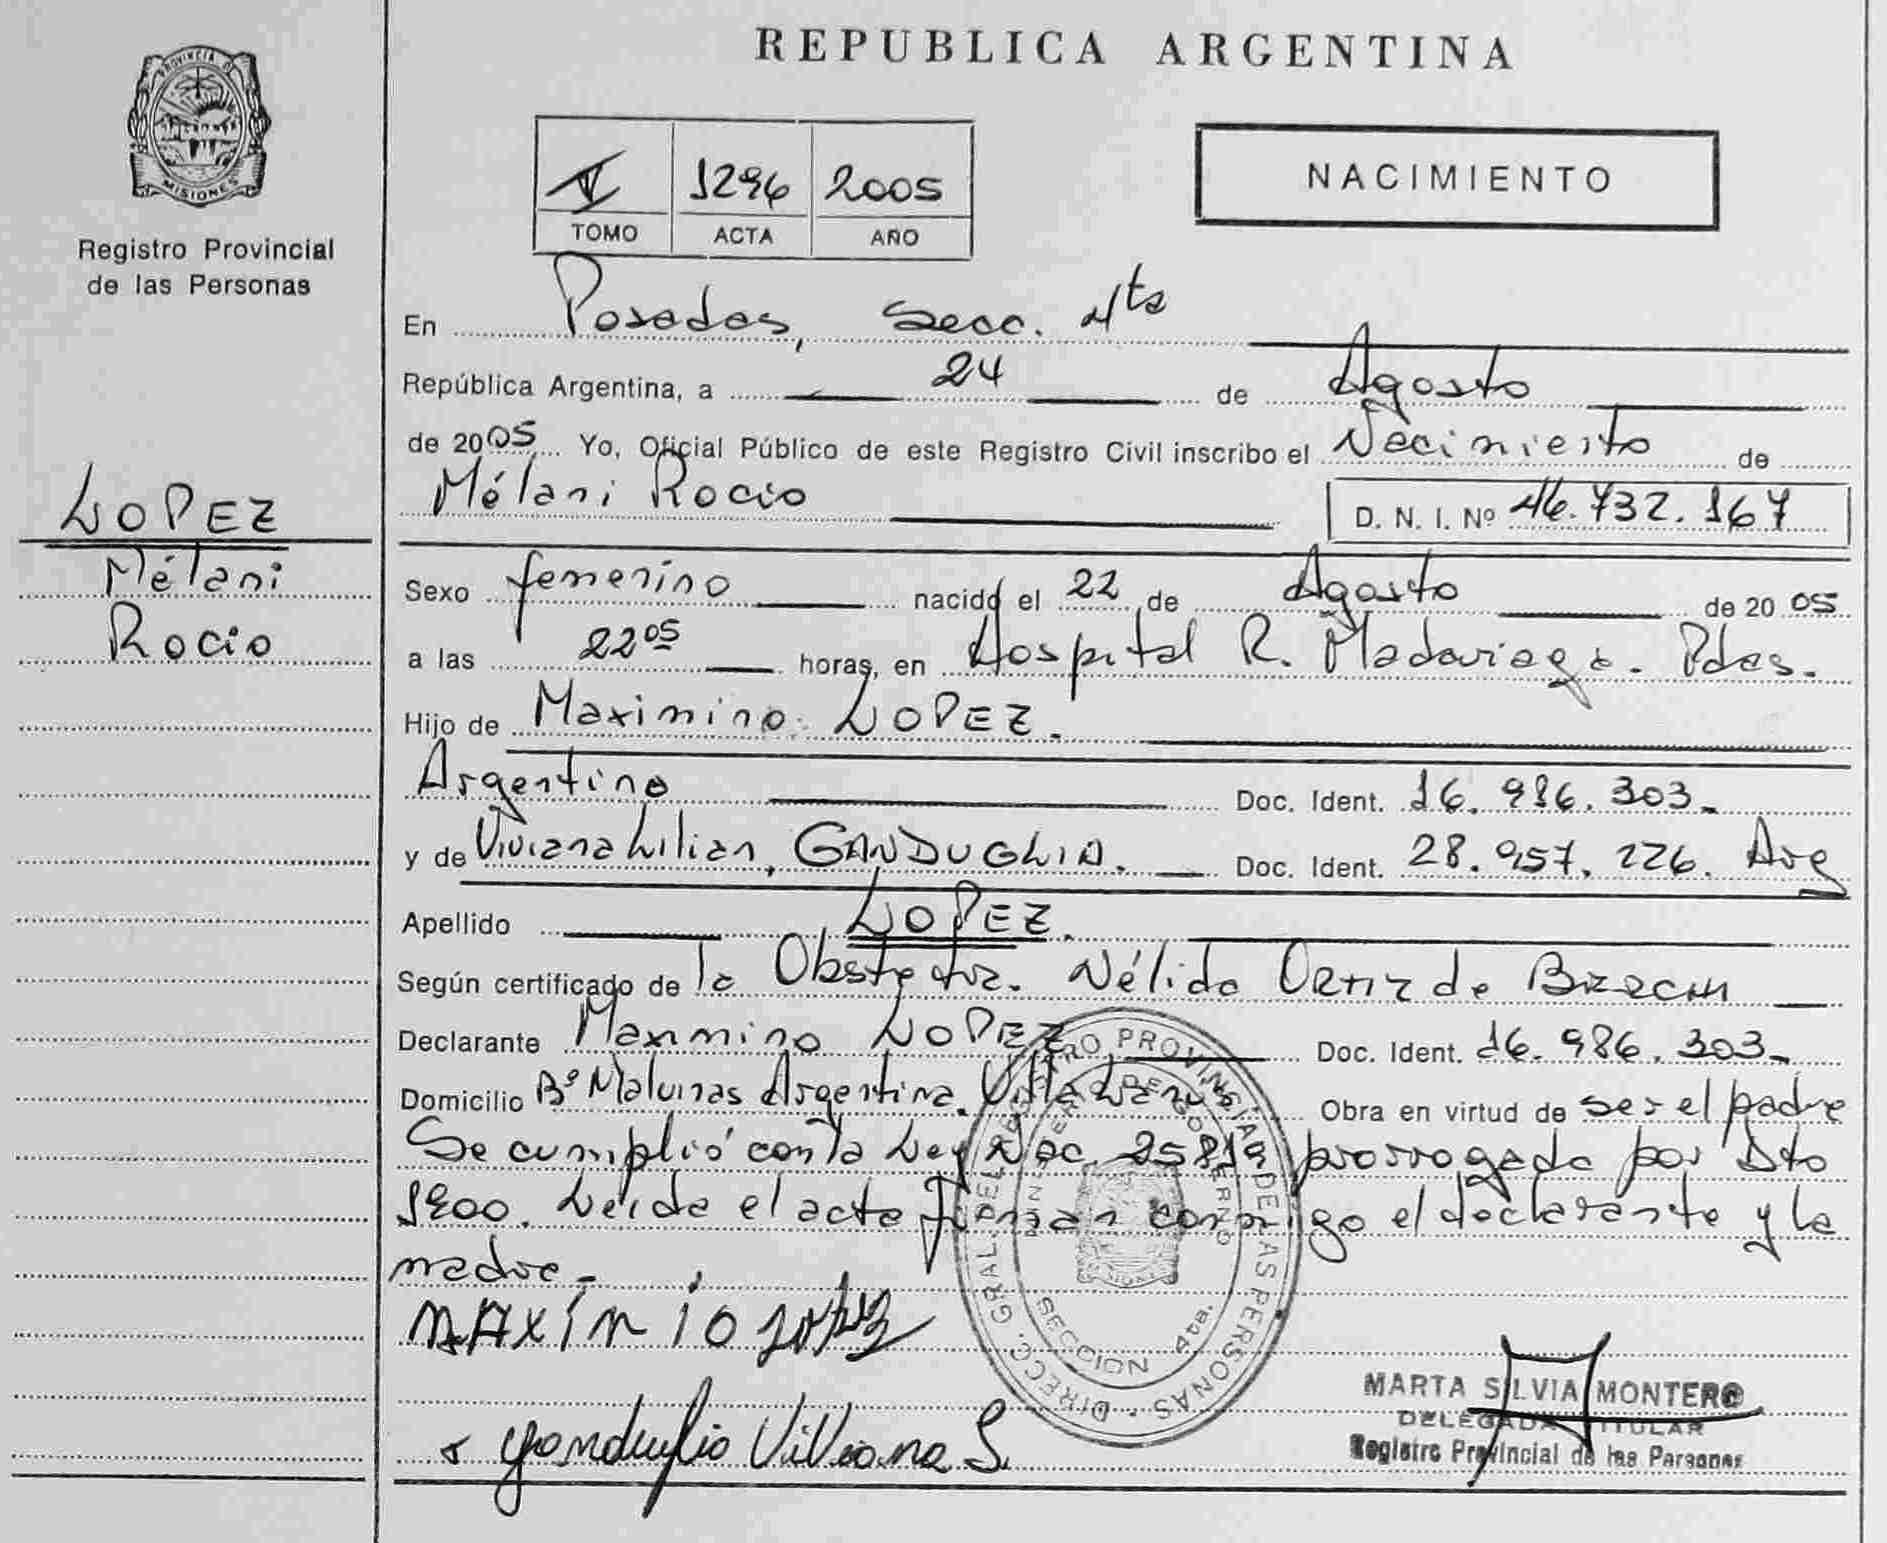 REPUBLICA ARGENTINA
PROVINCIA D
MISIONES
Registro Provincial
de las Personas
1296 2005
TOMO ACTA AÑO
NACIMIENTO
En Posadas, Secc. 4ta
República Argentina, a 24 de Agosto
de 2005 Yo, Oficial Público de este Registro Civil inscribo el Nacimiento de
Mélani Rocio D. N. I. Nº 46.732.167
LOPEZ
Mélani
Rocio
Sexo femenino nacido el 22 de Agosto de 20 05
a las 22 05 horas, en Hospital R. Madariaga. Pdas.
Hijo de Maximino LOPEZ.
Argentino Doc. Ident. 16.986.303.
y de Viviana Lilian, GANDUGLIA. Doc. Ident. 28.957.226. Arg
Apellido LOPEZ.
Según certificado de la Obstetra. Nélida Ortiz de
Declarante Maximino LOPEZ Doc. Ident. 16.986.303.
Domicilio Bº Malvinas Argentina. Villa Lanus Obra en virtud de ser el padre
Se cumplió con la Ley Nac. 25819 prorrogada por Dto
1900. Leida el acta firman conmigo el declarante y la
madre.
DIRECC. GRAL. DEL REGISTRO PROVINCIAL DE LAS PERSONAS
SECCION 4ta.
MARTA SILVIA MONTERO
DELEGADA TITULAR
Registro Provincial de las Personas
Viviana